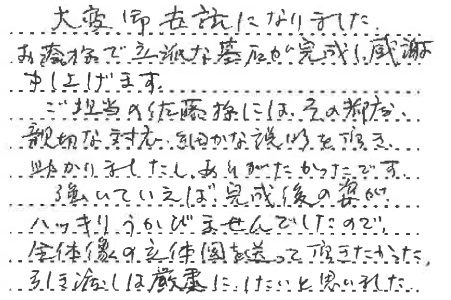 大変御世話になりました
お蔭様で立派な墓石が完成し、感謝
申し上げます。
ご担当の佐藤様には、その都度、
親切な対応、細かな説明を頂き、
助かりましたし、ありがたかったです。
強いていえば、完成後の姿が
ハッキリうかびませんでしたので、
全体像の立体図を送って頂きたかった。
引き渡しは厳粛にしたいと思いました。